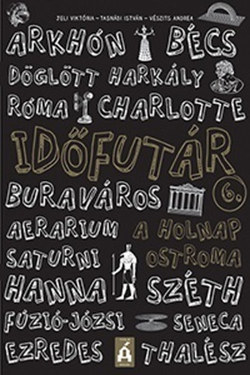 JELI VIKTÓRIA - TASNÁDI ISTVÁN - VÉSZITS ANDREA
ARKHÓN BÉCS
DÖGLÖTT HARKÁLY
RÓMA CHARLOTTE
IDŐFUTÁR
BURAVÁROS 6.
AERARIUM A HOLNAP
SATURNI OSTROMA
HANNA SZÉTH
FÚZIÓ-JÓZSI SENECA
EZREDES Á THALÉSZ